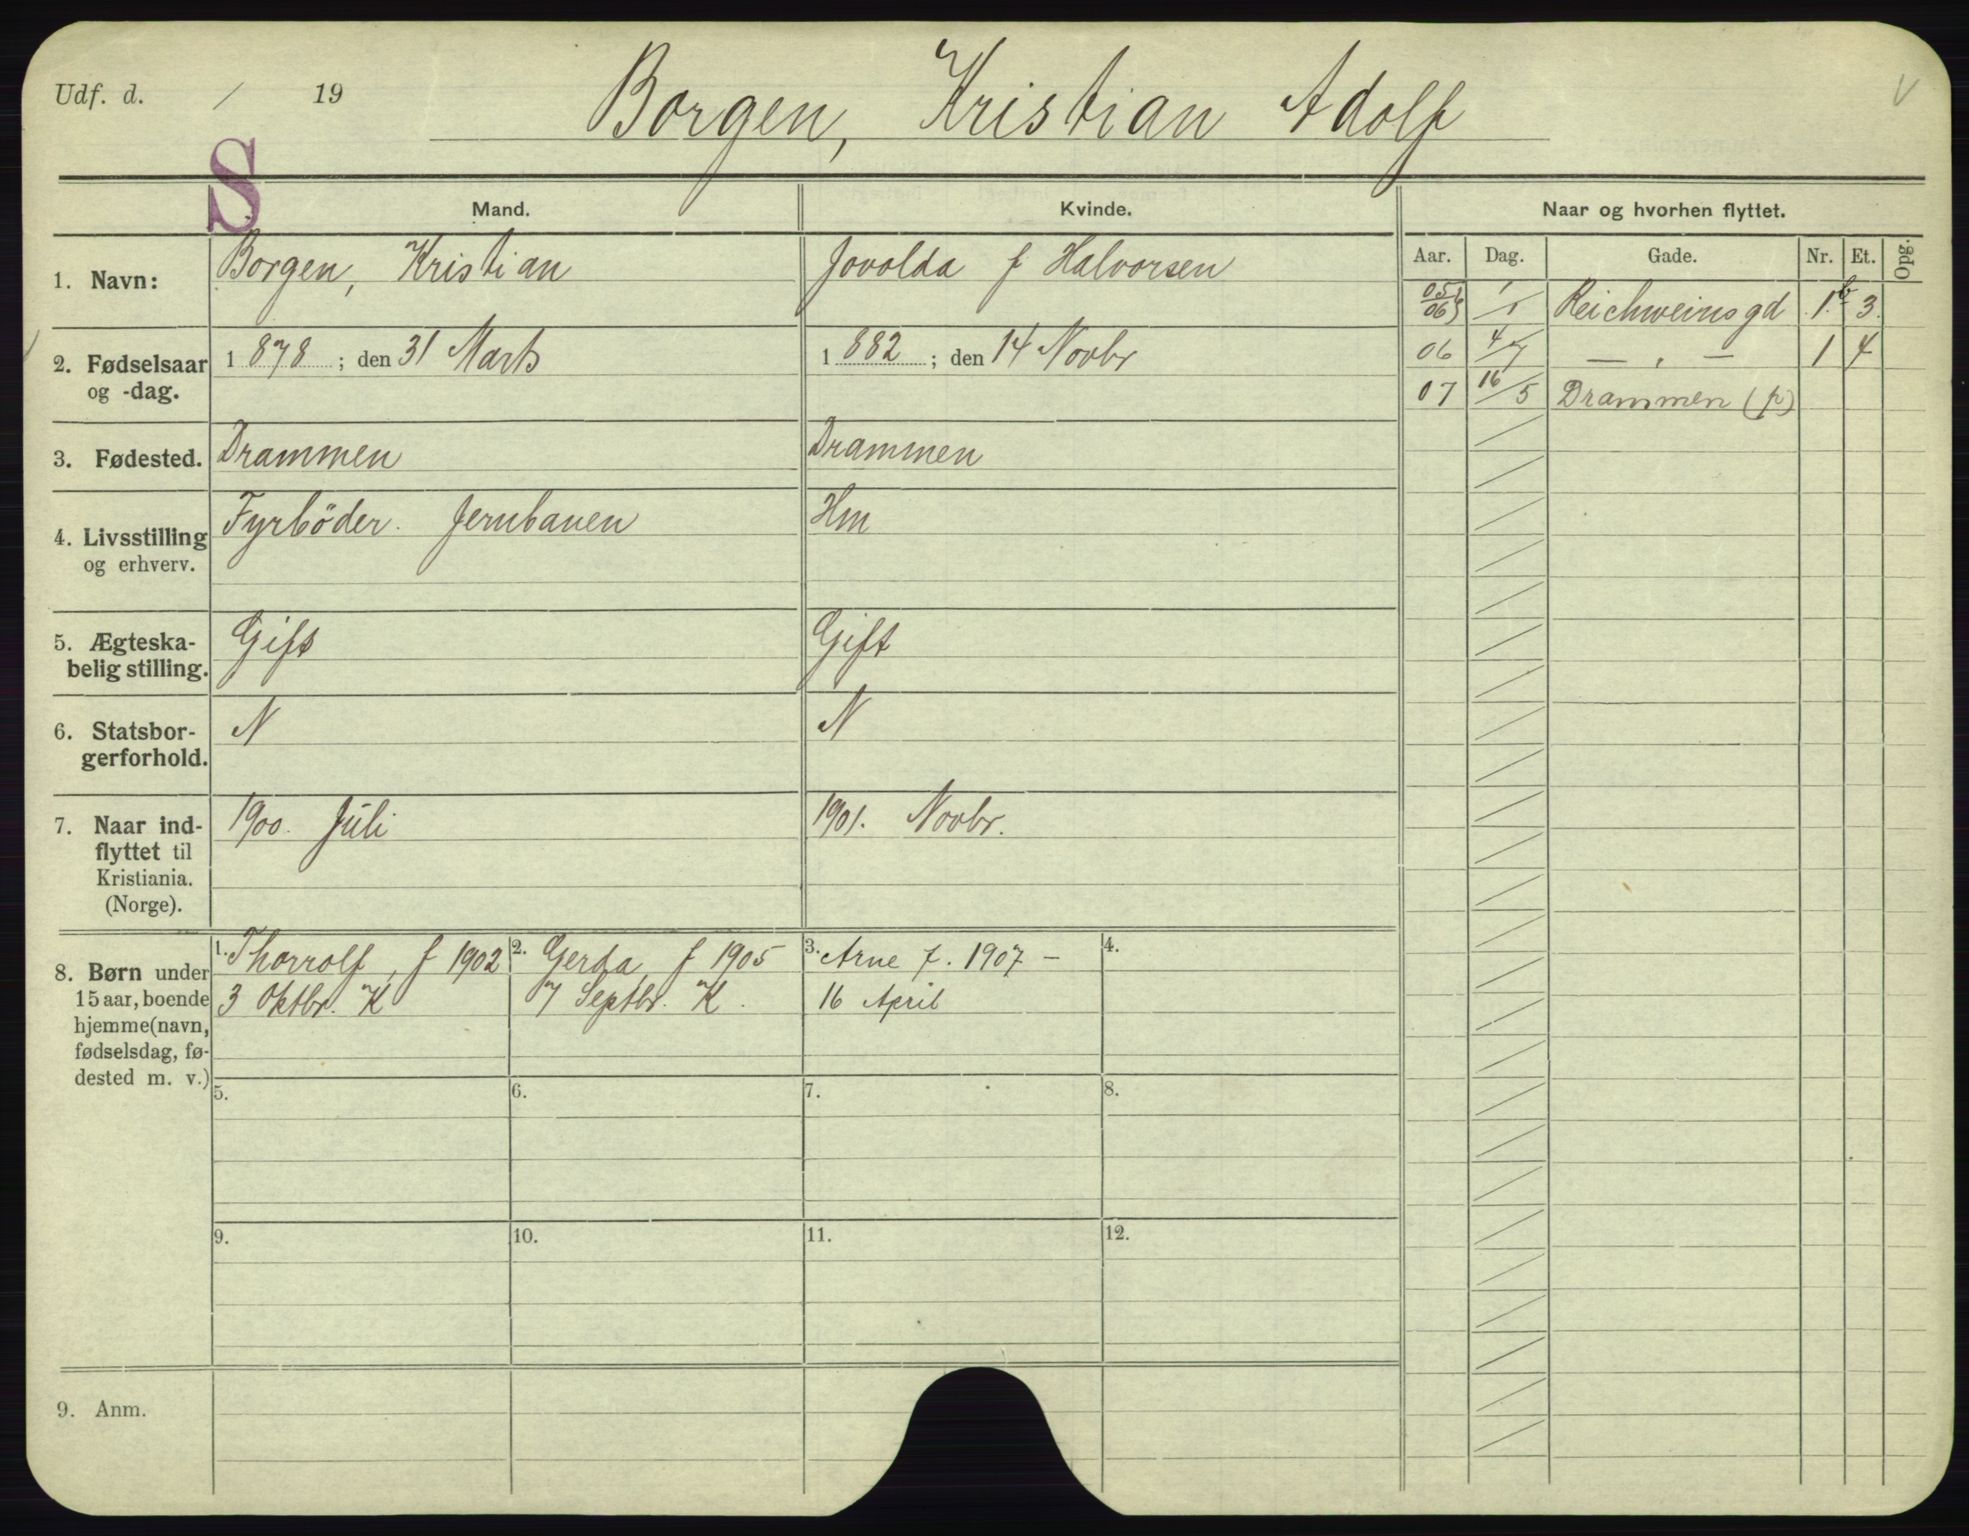 Udf. d. / 19
Borgen, Kristian Adolf
V
S
Mand. Kvinde. Naar og hvorhen flyttet.
Aar. Dag. Gade. Nr. Et. Opg.
1. Navn: Borgen, Kristian
Jovolda f Halvorsen
2. Fødselsaar og -dag.
1 878 ; den 31 Marts
1 882 ; den 14 Novbr
3. Fødested. Drammen
Drammen
4. Livsstilling og erhverv.
Fyrböder. Jernbanen
Hm
5. Ægteska-
belig stilling.
Gift
Gift
6. Statsbor-
gerforhold.
N
N
7. Naar ind-
flyttet til
Kristiania.
(Norge).
1900. Juli
1901. Novbr.
8. Børn under
15 aar, boende
hjemme (navn,
fødselsdag, fø-
dested m. v.)
1. Thorrolf, f 1902
3 Oktbr. K
2. Gerda f 1905
7 Septbr. K.
3. Arne f. 1907 –
16 April
4.
5.
6.
7.
8.
9.
10.
11.
12.
9. Anm.
05/06 1/1 Reichweinsgd 1b 3.
06 4/7 — „ — 1 4
07 16/5 Drammen (p)